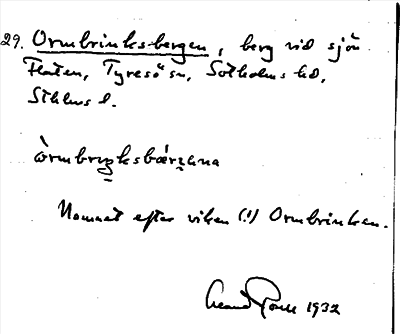 29. Ormbrinksbergen, berg vid sjön
Flaten, Tyresö sn, Sotholms hd,
Sthlms l.
òrmbryŋksbærjana
Namnet efter viken (!) Ormbrinken.
1932